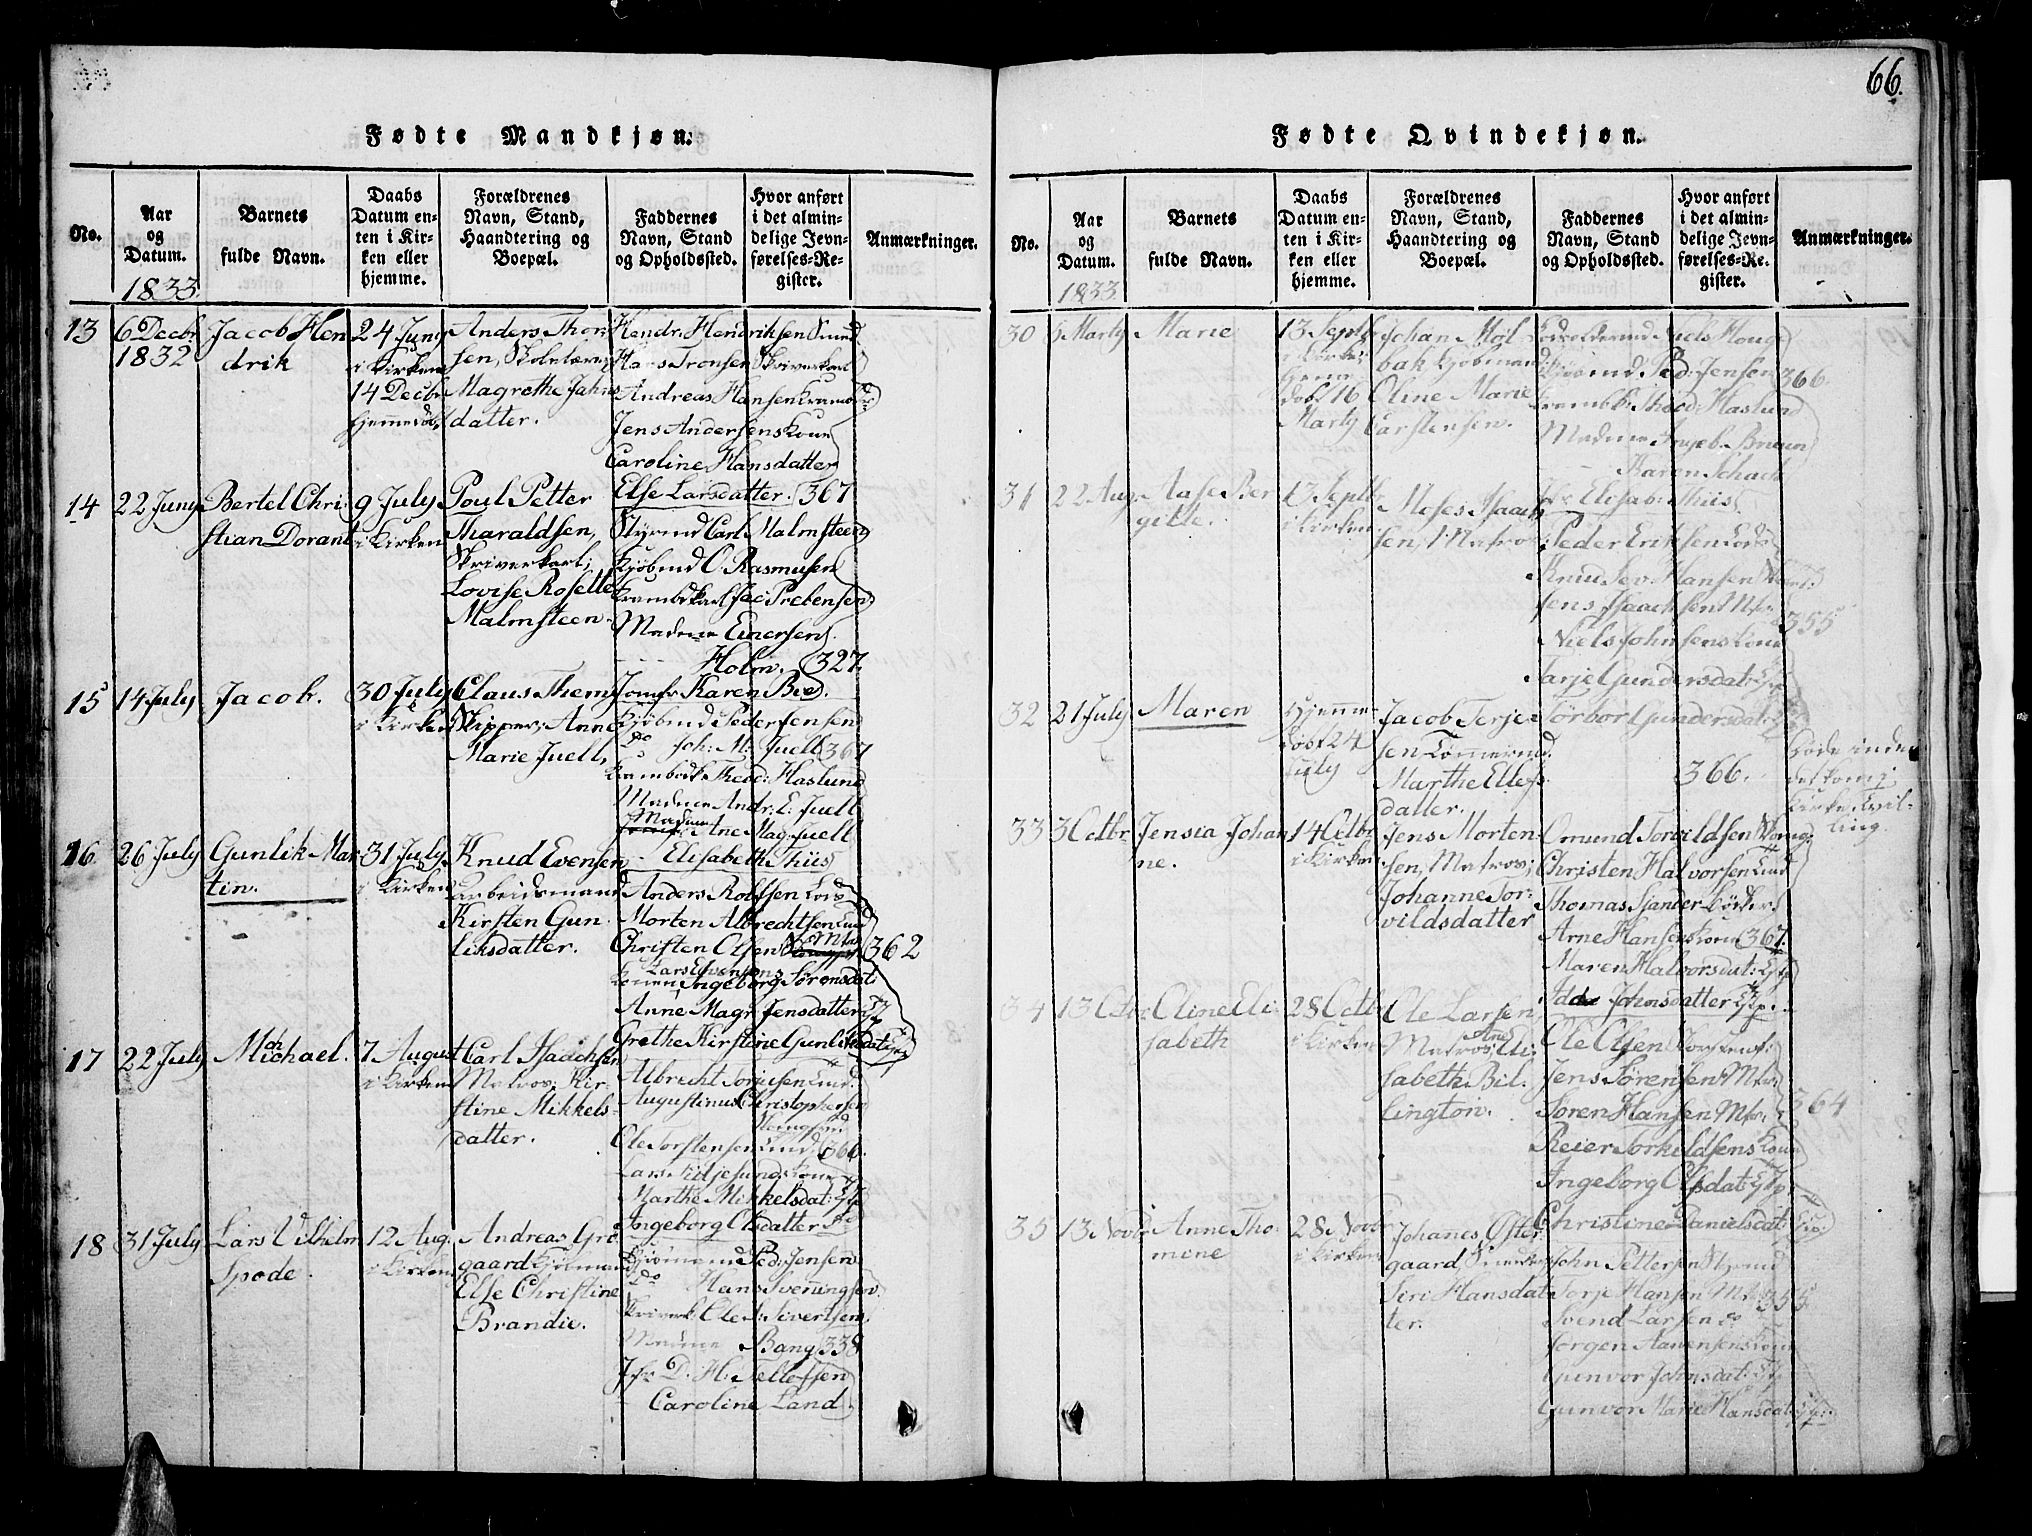 66.
Fødte Mandkjøn.
No.
Aar
og
Datum.
1833.
Barnets
fulde Navn.
Daabs
Datum en-
ten i Kir-
ken eller
hjemme.
Forældrenes
Navn, Stand,
Haandtering og
Boepæl.
Faddernes
Navn, Stand
og Opholdssted.
Hvor anført
i det almin-
delige Jevn-
førelses-Re-
gister.
Anmærkninger.
13
6 Decbr
1832
Jacob Hen
drik
24 Juny
i Kirken
14 Decbr
hjemmedøbt
Anders Thom
sen, Skolelærer
Magrethe Jahns
datter.
Hendr. Hendriksen Smed
Hans Tronsen Skriverkarl
Andreas Hansen
Jens Andersens Kone
Caroline Hansdatter
Else Larsdatter. 367
14
22 Juny
Bertel Chri
stian Dorant
9 July
i Kirken
Poul Petter
Tharaldsen,
Skriverkarl;
Lovise Rosette
Malmsteen
Styrmd Carl Malmsteen
Kjøbmd O. Rasmusen
Prebensen
Madme Einersen
Holm. 327.
Jomfr Karen Bie
15
14 July
Jacob.
30 July
i Kirken
Claus Them
Skipper; Anne
Marie Juell,
Kjøbmd Peder Jensen
Do Joh: M: Juell 367
Theod: Haslund
Madme Andr: E. Juell
Madme Ane Mag: Juell
- Elisabeth Thiis
16.
26 July
Gunlik Mar
tin.
31 July
i Kirken
Knud Evensen
arbeidsmand
Kirsten Gun
liksdatter.
Anders Rolfsen Lods
Morten Albrechtsen
Christen Olsen Mtr 362
Lars Evensens
Konen, Ingeborg Sørensdat:
Anne Magr Jensdatter
Grethe Kirstine Gunliksdat:
17
22 July
Michael.
7 August
i Kirken
Carl Isachsen
Matros; Kir-
stine Mikkels-
datter.
Albrecht Torjusen
Augustinus Christophersen
Ole Torstensen 366.
Lars Kone
Marthe Mikkelsdat:
Ingeborg Olsdatter
18
31 July
Lars Vilhelm
Spode.
12 Aug.
i Kirken
Andreas Grø
gaard Kjøbmand
Else Christine
Brandie.
Kjøbmd Ped: Jensen
Do Hans Svenningsen
Skriverk Ole S: Sivertsen
Madme Bang 338
Jfr D. H. Tellefsen
- Caroline Land
Fødte Qvindekjøn.
No.
Aar
og
Datum.
1833
Barnets
fulde Navn.
Daabs
Datum en-
ten i Kir-
ken eller
hjemme.
Forældrenes
Navn, Stand,
Haandtering og
Boepæl.
Faddernes
Navn, Stand
og Opholdssted.
Hvor anført
i det almin-
delige Jevn-
førelses-Re-
gister.
Anmærkninger.
30
5 Marty
Marie
13 Septbr
i Kirken
hjemme
døbt 16
Marty
Johan Møl
bak Kjøbmand
Oline Marie
Carstensen.
Niels Houge
Kjøbmd Ped: Jensen 366.
Theod: Haslund
Madme Ingeb. Bruun
- Karen Schach
Jfr Elisab: Thiis
31
22 Aug.
Aase Ber
gitte.
13 Septbr
i Kirken
Moses Isaach
sen, Matros
Peder Eriksen Lods
Knud Sev: Hansen
Jens Isaachsen Mtr
355
Niels Johnsens Kone
Tarje Gundersdat:
Tørbor Gundersdat:
32
21 July
Maren
Hjemme-
døbt 24
July
Jacob Terje
sen Tømmermd
Marthe Ellefs
datter.
366.
Døde inden
det kom i
Kirke. Tvil-
ling.
33
3 Octbr
Jensia Johan
ne.
14 Octbr
i Kirken
Jens Morten
sen, Matros;
Johanne Tor-
vildsdatter
Omund Torvildsen
Christen Halvorsen
Thomas Sjander Bødker
Arne Hansens Kone 367.
Maren Halvorsdat:
Johnsdatter
34
13 Octbr
Oline Eli
sabeth
28 Octbr
i Kirken
Ole Larsen
Matros; Ane Eli
sabeth Bil.
lington.
Ole Olsen
Jens Sørensen Mtr.
Søren Hansen Mtr. 364
Reier Torkeldsens Kone
Ingeborg Olsdat:
Christine Danielsdat:
35
13 Novbr
Anne Tho-
mine
28 Novbr
i Kirken
Johanes Øster
gaard, Snedker
Siri Hansdat
ter.
John Pettersen Styrmd
Torje Hansen Mtr 355
Svend Larsen do
Jørgen Aanensens Kone
Gunvor Johnsdat:
Gunvor Marie Hansdat: